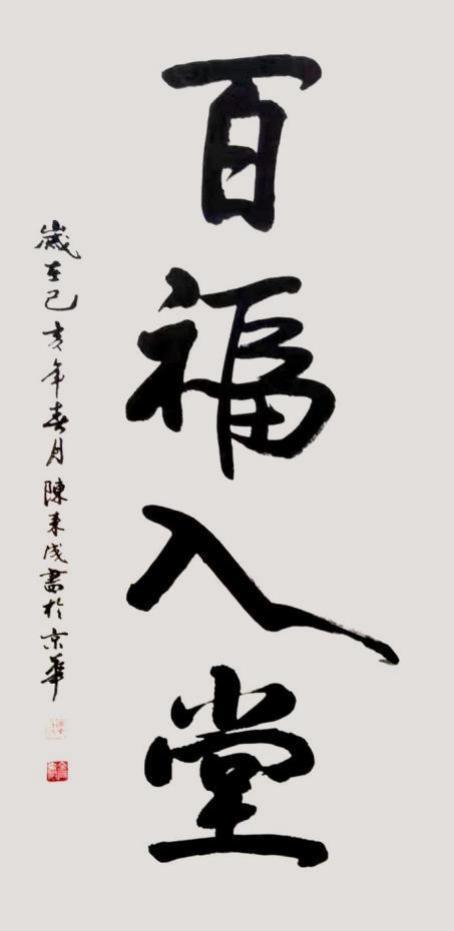 百福入堂
歲在己亥年春月陳来成書於京華